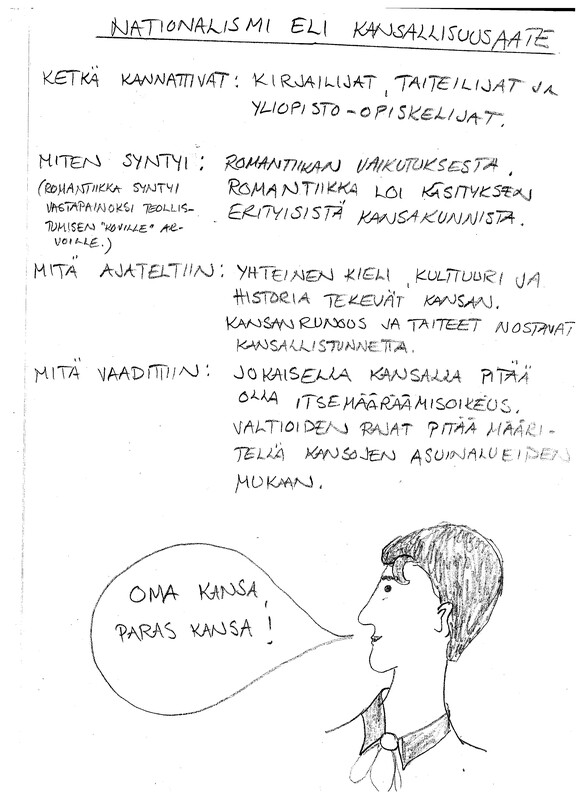 NATIONALISMI ELI KANSALLISUUSAATE
KETKÄ KANNATTIVAT: KIRJAILIJAT, TAITEILIJAT JA
YLIOPISTO-OPISKELIJAT.
MITEN SYNTYI: ROMANTIIKAN VAIKUTUKSESTA.
(ROMANTIIKKA SYNTYI
VASTAPAINOKSI TEOLLIS-
TUMISEN "KOVILLE" AR-
VOILLE.)
ROMANTIIKKA LOI KÄSITYKSEN
ERITYISISTÄ KANSAKUNNISTA.
MITÄ AJATELTIIN: YHTEINEN KIELI, KULTTUURI JA
HISTORIA TEKEVÄT KANSAN.
KANSANRUNOUS JA TAITEET NOSTAVAT
KANSALLISTUNNETTA.
MITÄ VAADITTIIN: JOKAISELLA KANSALLA PITÄÄ
OLLA ITSEMÄÄRÄÄMISOIKEUS.
VALTIOIDEN RAJAT PITÄÄ MÄÄRI-
TELLÄ KANSOJEN ASUINALUEIDEN
MUKAAN.
OMA KANSA,
PARAS KANSA!